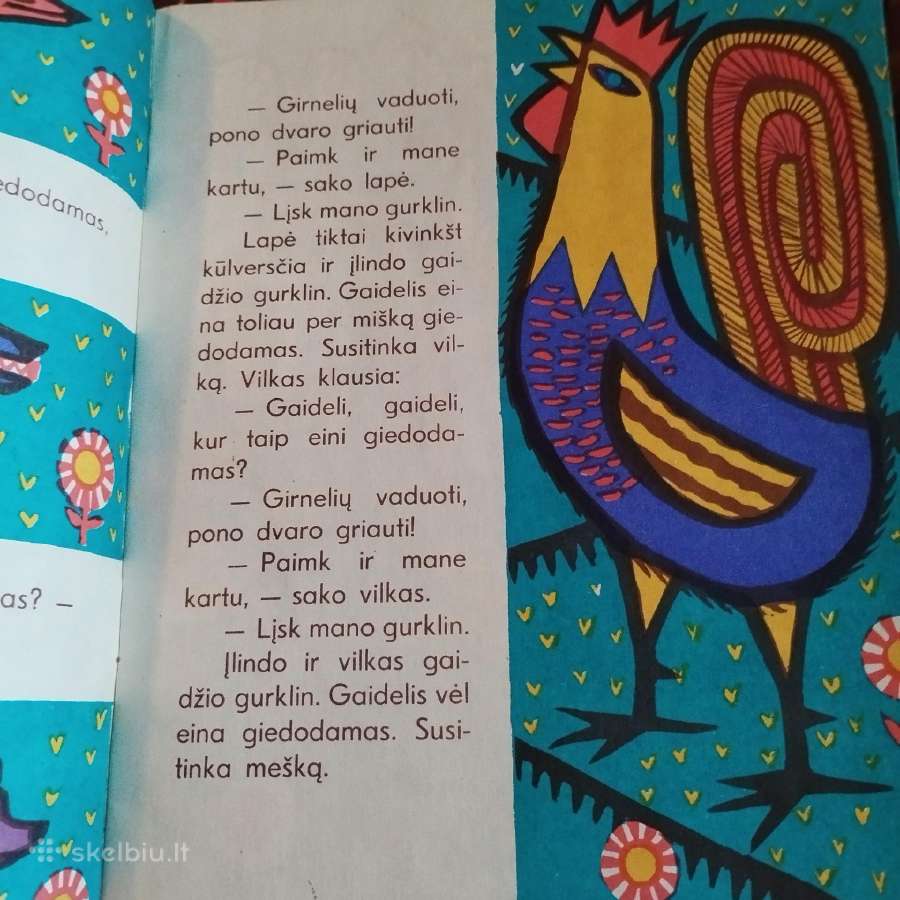 edodamas,
as? —
— Girnelių vaduoti,
pono dvaro griauti!
— Paimk ir mane
kartu, — sako lapė.
— Lįsk mano gurklin.
Lapė tiktai kivinkšt
kūlversčia ir įlindo gai-
džio gurklin. Gaidelis ei-
na toliau per mišką gie-
dodamas. Susitinka vil-
ką. Vilkas klausia:
— Gaideli, gaideli,
kur taip eini giedoda-
mas?
— Girnelių vaduoti,
pono dvaro griauti!
— Paimk ir mane
kartu, — sako vilkas.
— Lįsk mano gurklin.
Įlindo ir vilkas gai-
džio gurklin. Gaidelis vėl
eina giedodamas. Susi-
tinka mešką.
skelbiu.lt